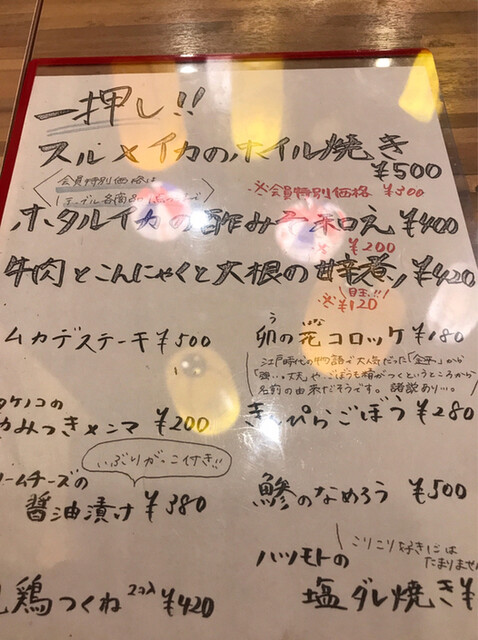 一押し!!
スルメイカのホイル焼き
¥500
会員特別価格は
※会員特別価格 ¥300
ホタルイカの酢みそ和え ¥400
※¥200
牛肉とこんにゃくと大根の甘辛煮 ¥420
目玉!!
※¥120
ムカデステーキ ¥500
う はな
卯の花コロッケ ¥180
江戸時代の物語で大人気だった「金平」から
強い・丈夫やごぼうも精がつくというところから
名前の由来だそうです。諸説あり…。
タケノコの
みつきメンマ ¥200
きんぴらごぼう ¥280
いぶりがっこ付き!!
ームチーズの
醤油漬け ¥380
鯵のなめろう ¥500
こりこり好きには
たまりませ
ハツモトの
塩ダレ焼き ¥
鶏つくね 2コ入 ¥420